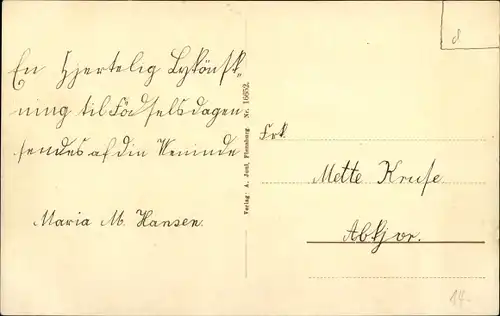 En Hjertelig Lykönsk-
ning til Födselsdagen
sendes af din Veninde
Maria M. Hansen.
Verlag: A. Jual, Flensburg Nr. 16652.
Frk.
Mette Kruse.
Abkjær.
14.-